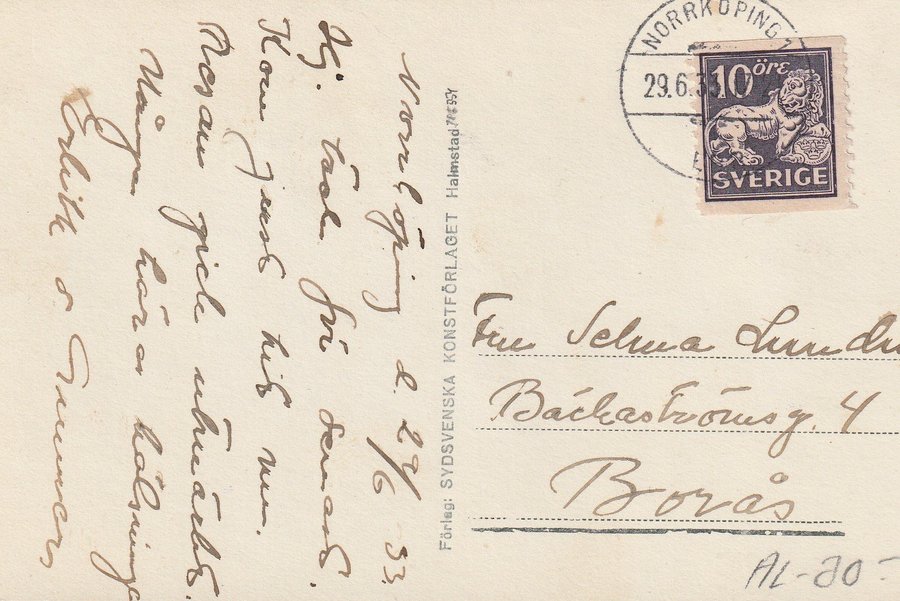 Norrköping d. 29/6 33.
Hej. tack för senast.
Kom just hit nu.
Resan gick utmärkt.
Många kära hälsningar
Erlith o Gunnar
Förlag: SYDSVENSKA KONSTFÖRLAGET Halmstad
NORRKÖPING 1
29.6.33
10 öre
SVERIGE
Fru Selma Lund
Bäckaströmsg. 4
Borås
AL-20-